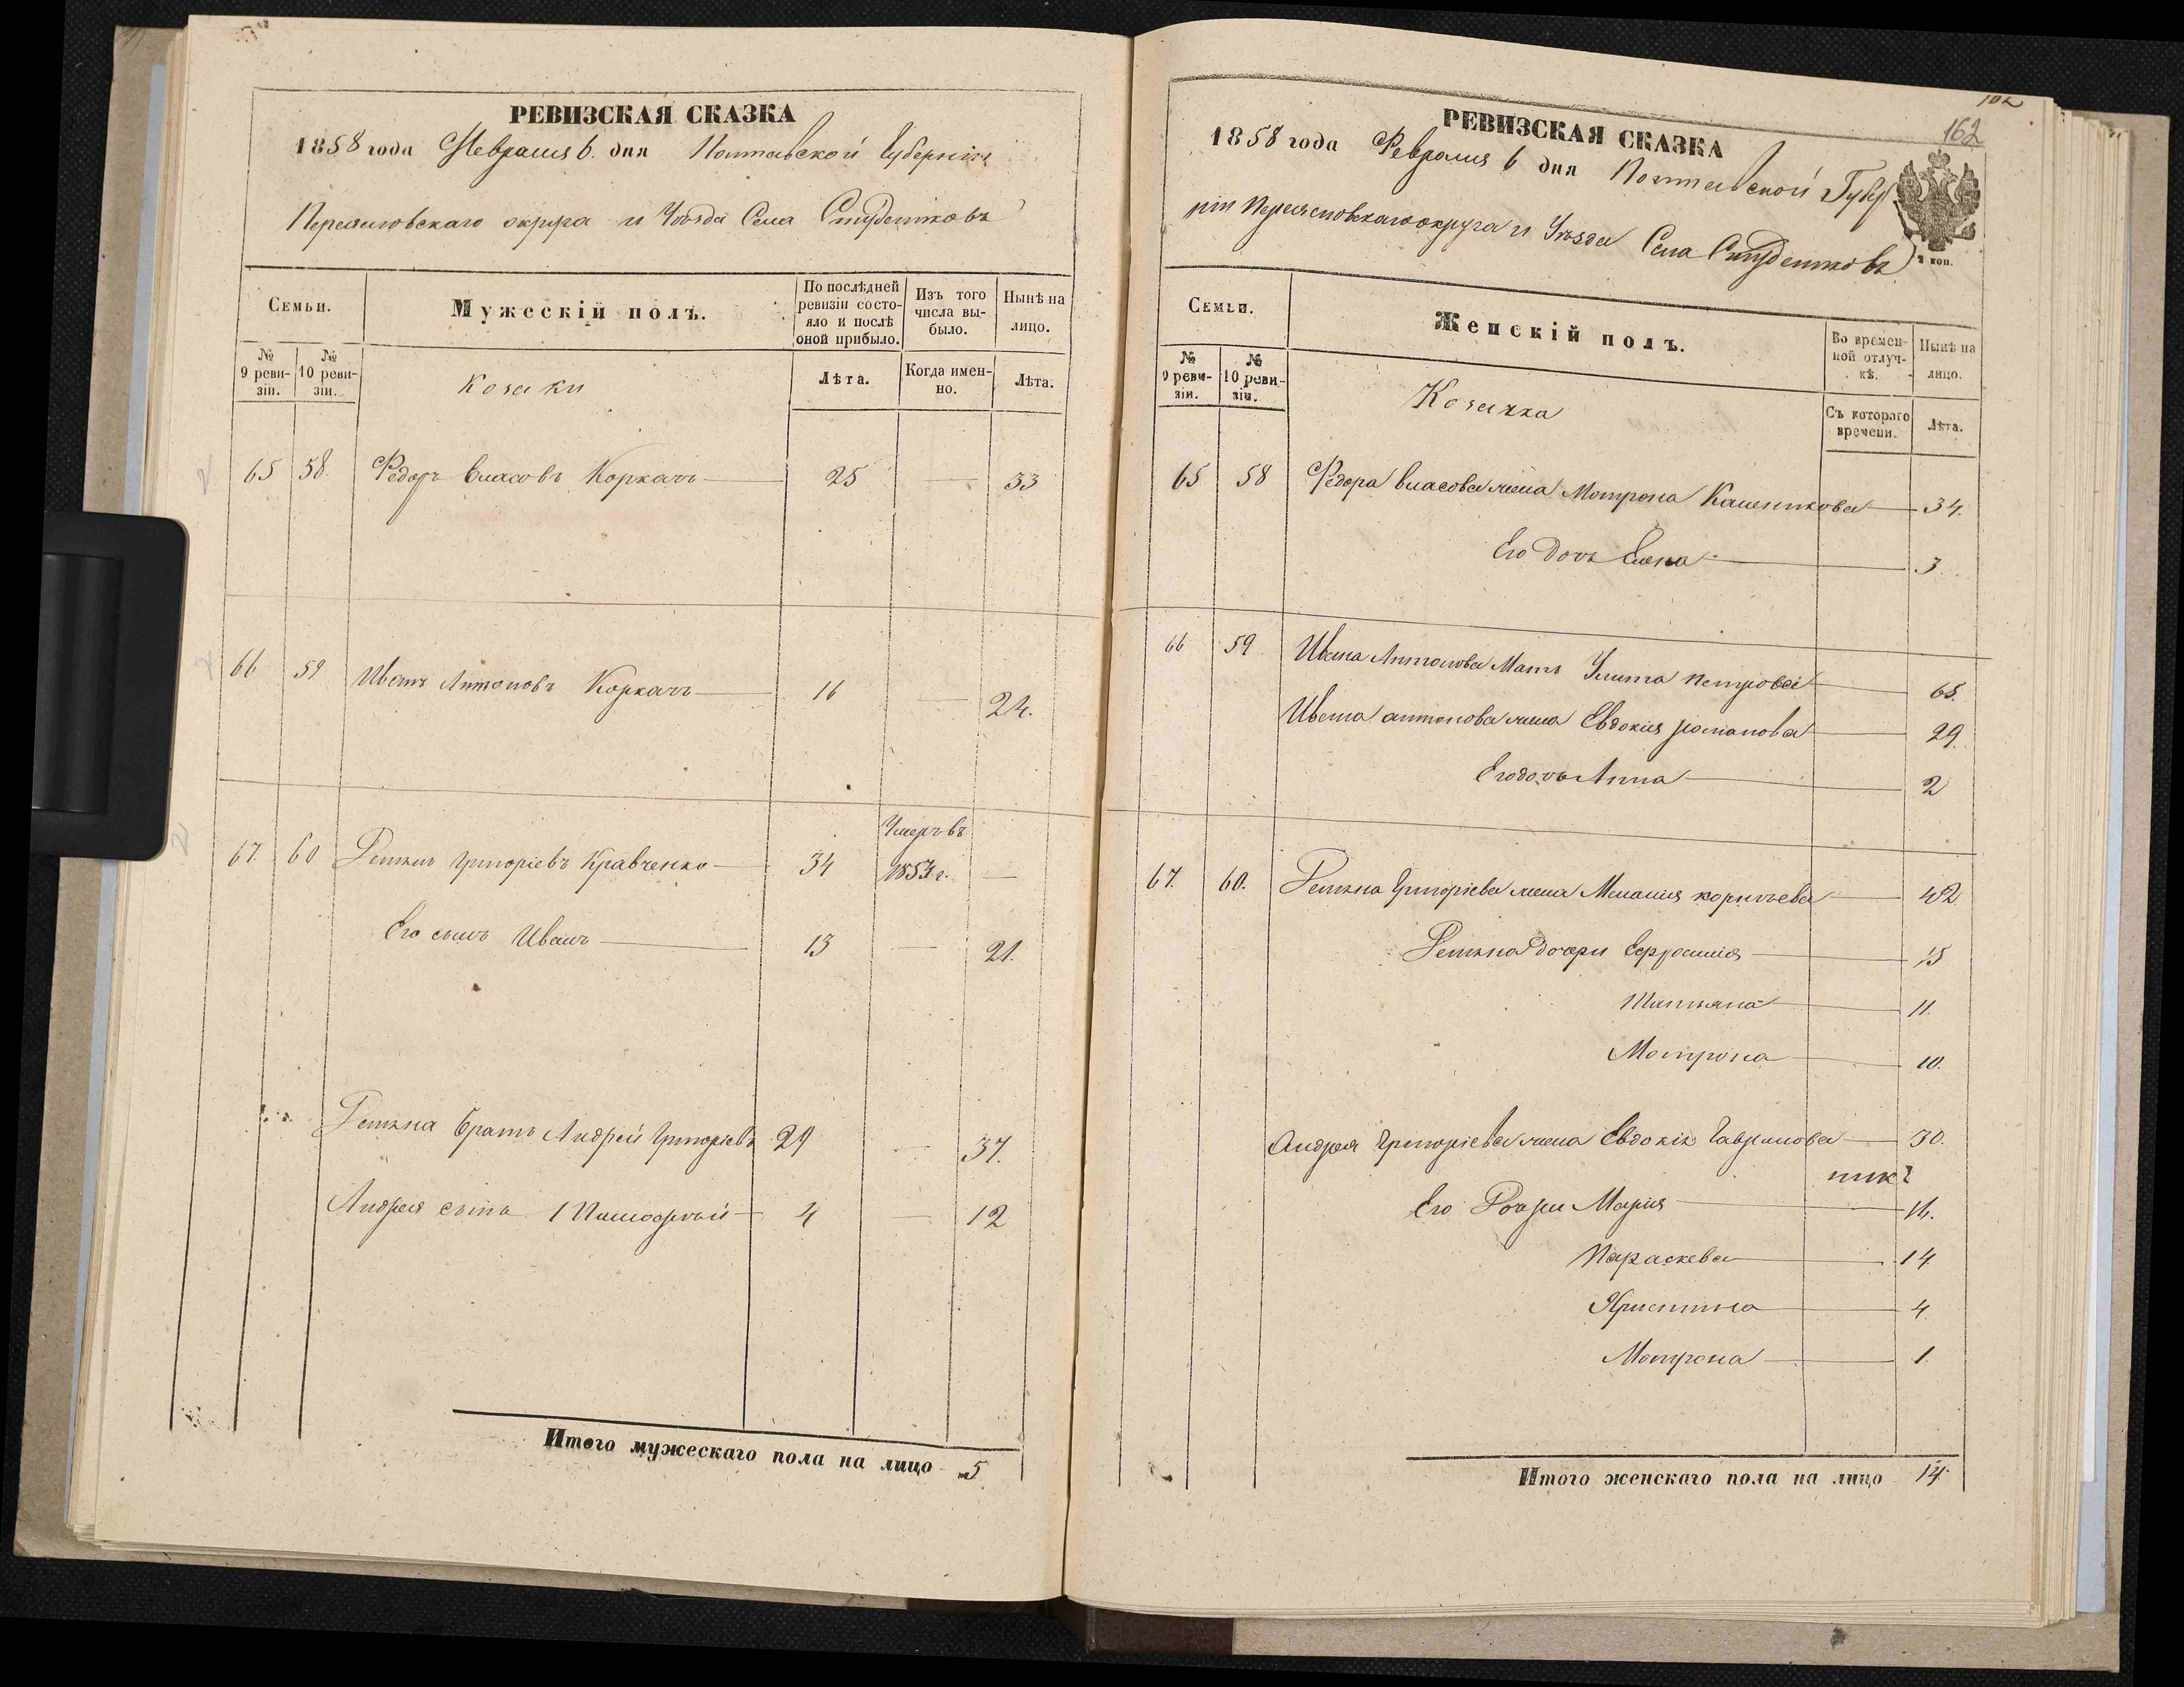 РЕВИЗСКАЯ СКАЗКА
1858 года Февраля 6. дня Полтавской Губерніи
Переясловскаго округа и Уѣзда Села Студениковъ
Семьи.
Мужескій полъ.
По послѣдней ревизіи состояло и послѣ оной прибыло.
Изъ того числа выбыло.
Нынѣ на лицо.
№ 9 ревизіи.
№ 10 ревизіи.
Козаки
Лѣта.
Когда именно.
Лѣта.
65 58 Федоръ Власовъ Коркачъ 25 33
66 59 Иванъ Антоновъ Коркачъ 16 24.
67. 60 Григоріевъ Кравченко 34 Умеръ въ 1853 г.
Его сынъ Иванъ 13 21.
братъ Андрей Григорієвъ 29 37.
Андрея сынъ 1 4 12
Итого мужескаго пола на лицо 5
102
162
РЕВИЗСКАЯ СКАЗКА
1858 года Февраля 6 дня Полтавской Губер
ніи Переясловскаго округа и Уѣзда Села Студениковъ
коп.
Семьи.
Женскій полъ.
Во временной отлучкѣ.
Нынѣ на лицо.
№ 9 ревизіи.
№ 10 ревизіи.
Козачка
Съ котораго времени.
Лѣта.
65 58 Федора Власова жена Мотрона 34.
Его дочь Елена 3
66 59 Ивана Антонова Мать Улита Петрова 65.
Ивана антонова жена Евдокия романова 29.
Его дочь Анна 2
67. 60. Григоріева жена Меланія корнѣева 42.
дочери Ефросинія 15
Татьяна 11.
Мотрона 10.
Андрея Григоріева жена Евдокія Гаврилова 30.
Его Дочери Марія 16.
Параскева 14
Христина 4.
Мотрона 1.
Итого женскаго пола на лицо 14.